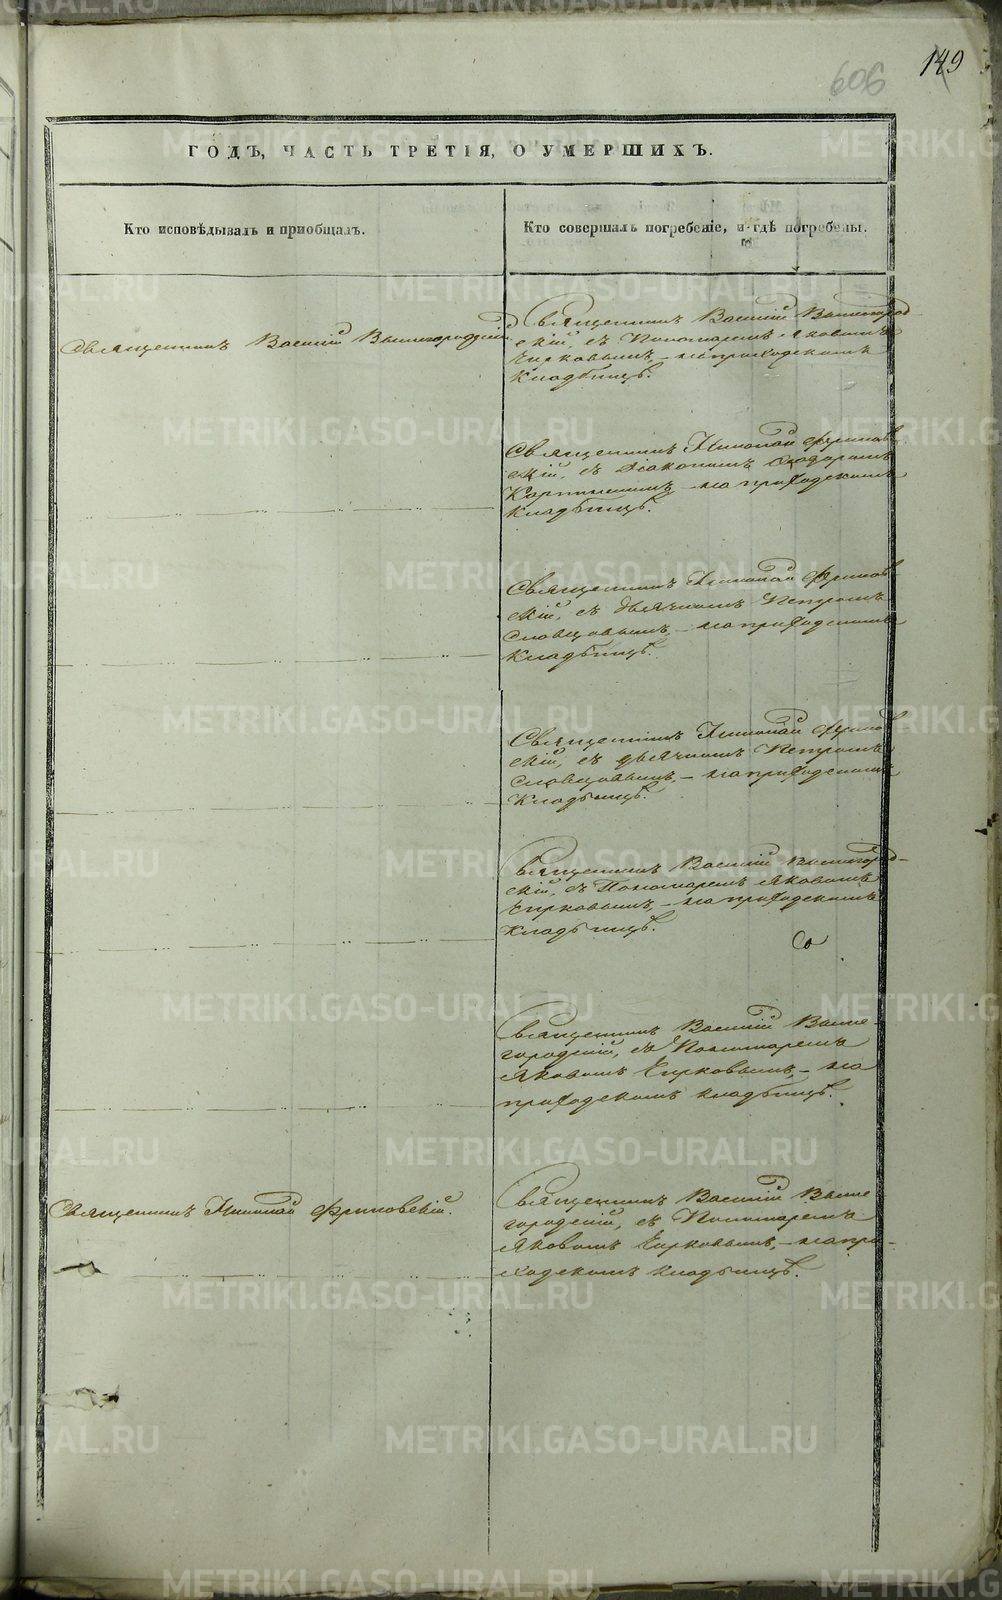 606
149
ГОДЪ, ЧАСТЬ ТРЕТІЯ, О УМЕРШИХЪ.
Кто исповѣдывалъ и пріобщалъ.
Кто совершалъ погребеніе, и гдѣ погребены.
Священникъ Василій Вышегородскій.
Священникъ Василій Вышегород-
скій, съ Пономаремъ Яковомъ
Чирковымъ, – на приходскомъ
кладбищѣ.
Священникъ Николай Фринов
скій, съ Діакономъ
на приходскомъ
кладбищѣ.
Священникъ Николай Фринов
скій, съ дьячкомъ Петромъ
Словцовымъ, – на приходскомъ
кладбищѣ.
Священникъ Николай Фринов
скій, съ дьячкомъ Петромъ
Словцовымъ, – на приходскомъ
кладбищѣ.
Священникъ Василій Вышегород-
скій, съ Пономаремъ Яковомъ
Чирковымъ, – на приходскомъ
кладбищѣ.
Священникъ Василій Выше-
городскій, съ Пономаремъ
Яковомъ Чирковымъ, – на
приходскомъ кладбищѣ.
Священникъ Николай Фриновскій.
Священникъ Василій Выше
городскій, съ Пономаремъ
Яковомъ Чирковымъ, – на при-
ходскомъ кладбищѣ.
METRIKI.GASO-URAL.RU